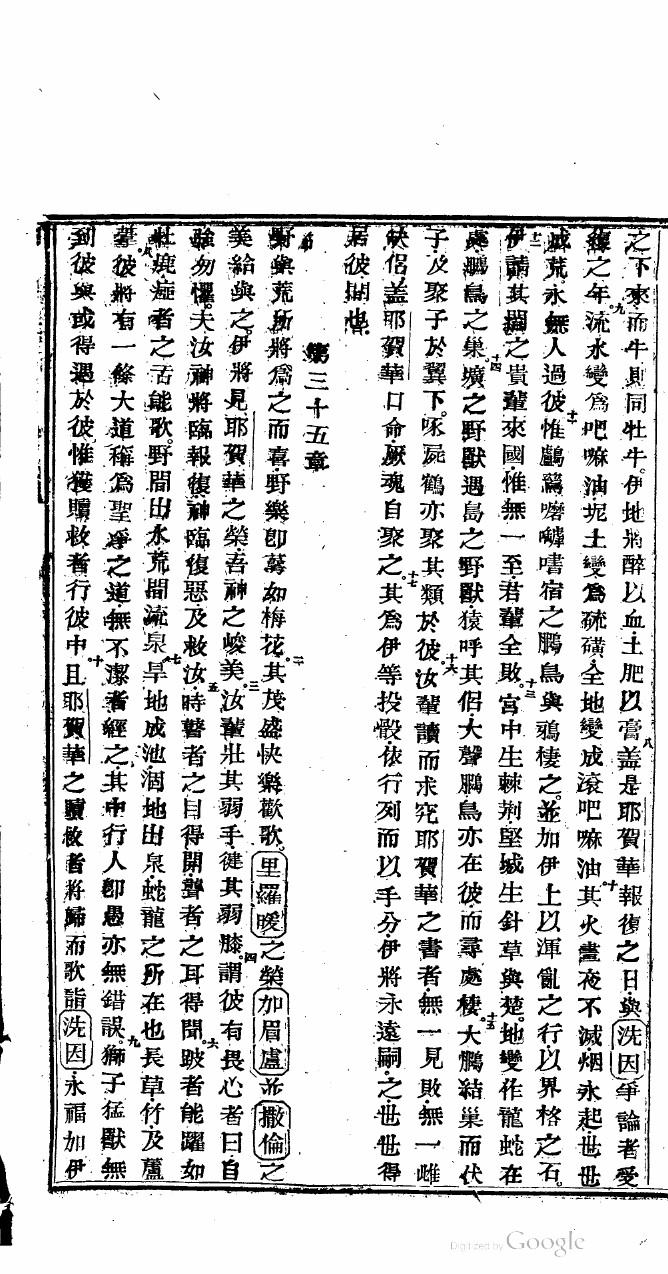 之下來而牛則同牡牛。伊地將醉以血。土肥以膏。八蓋是耶賀華報復之日。與洗因爭論者受
復之年。九流水變為吧嘛油。坭土變為硫磺。全地變成滾吧嘛油。十其火晝夜不滅。烟永起世世
滅荒。永無人過彼。十一惟鸕鶿嘐嘐嗜宿之。鵬鳥與鴉棲之。並加伊上以渾亂之行。以界格之石。
十二伊請其國之貴輩來國。惟無一至。君輩全敗。十三宮中生棘荊。堅城生針草與楚。地變作龍蛇在
處。鵬鳥之巢。十四壙之野獸遇島之野獸。猿呼其侶。大聲鵬鳥亦在彼而尋處棲。十五大鵬結巢而伏
子。及聚子於翼下。啄屍鶴亦聚其類於彼。十六汝輩讀而求究耶賀華之書者。無一見敗。無一雌
缺侶。蓋耶賀華口命。厥魂自聚之。十七其為伊等投骰。依行列而以手分。伊將永遠嗣之。世世得
居彼間也。
第三十五章
野與荒所將為之而喜。野樂即萼如梅花。二其茂盛快樂歡歌。里羅暖之榮。加眉盧並撒倫之
美給與之。伊將見耶賀華之榮。吾神之峻美。三汝輩壯其弱手。健其弱膝。四謂彼有畏心者曰。自
強勿懼。夫汝神將臨報復。神臨復惡及救汝。五時瞽者之目得開。聾者之耳得聞。六跛者能躍如
牡鹿。瘂者之舌能歌。野間出水。荒間流泉。七旱地成池。涸地出泉。蛇龍之所在也。長草竹及蘆
葦。八彼將有一條大道。稱為聖凈之道。無不潔者經之。其中行人即愚亦無錯誤。九獅子猛獸無
到彼與或得遇於彼。惟獲贖救者行彼中。十且耶賀華之贖救者將歸而歌詣洗因。永福加伊
Digitized by Google